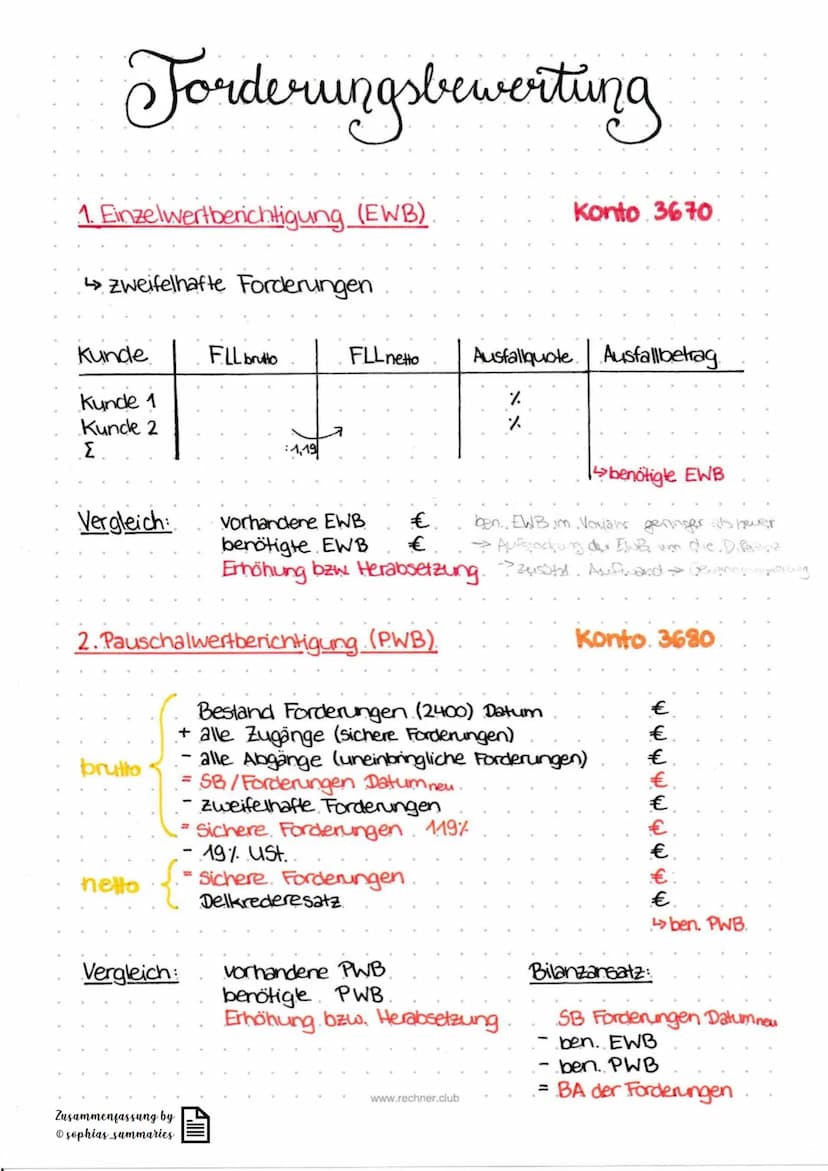 Forderungsbewertung
1. Einzelwertberichtigung (EWB) Konto 3670
↳ zweifelhafte Forderungen
Kunde FLL brutto FLL netto Ausfallquote Ausfallbetrag
Kunde 1 %
Kunde 2 %
Σ :1,19
↳ benötigte EWB
Vergleich: vorhandene EWB € ben. EWB im Vorjahr geringer als heuer
benötigte EWB € → der EWB um die
Erhöhung bzw Herabsetzung. → zusätzl. Aufwand →
2. Pauschalwertberichtigung (PWB) Konto 3680
Bestand Forderungen (2400) Datum €
+ alle Zugänge (sichere Forderungen) €
- alle Abgänge (uneinbringliche Forderungen) €
brutto
= SB/Forderungen Datum neu €
- zweifelhafte Forderungen €
= sichere Forderungen 119% €
- 19% USt. €
netto = sichere Forderungen €
Delkrederesatz €
↳ ben. PWB
Vergleich: vorhandene PWB Bilanzansatz:
benötigte PWB
Erhöhung bzw. Herabsetzung SB Forderungen Datum neu
- ben. EWB
- ben. PWB
= BA der Forderungen
www.rechner.club
Zusammenfassung by
© sophias_summaries